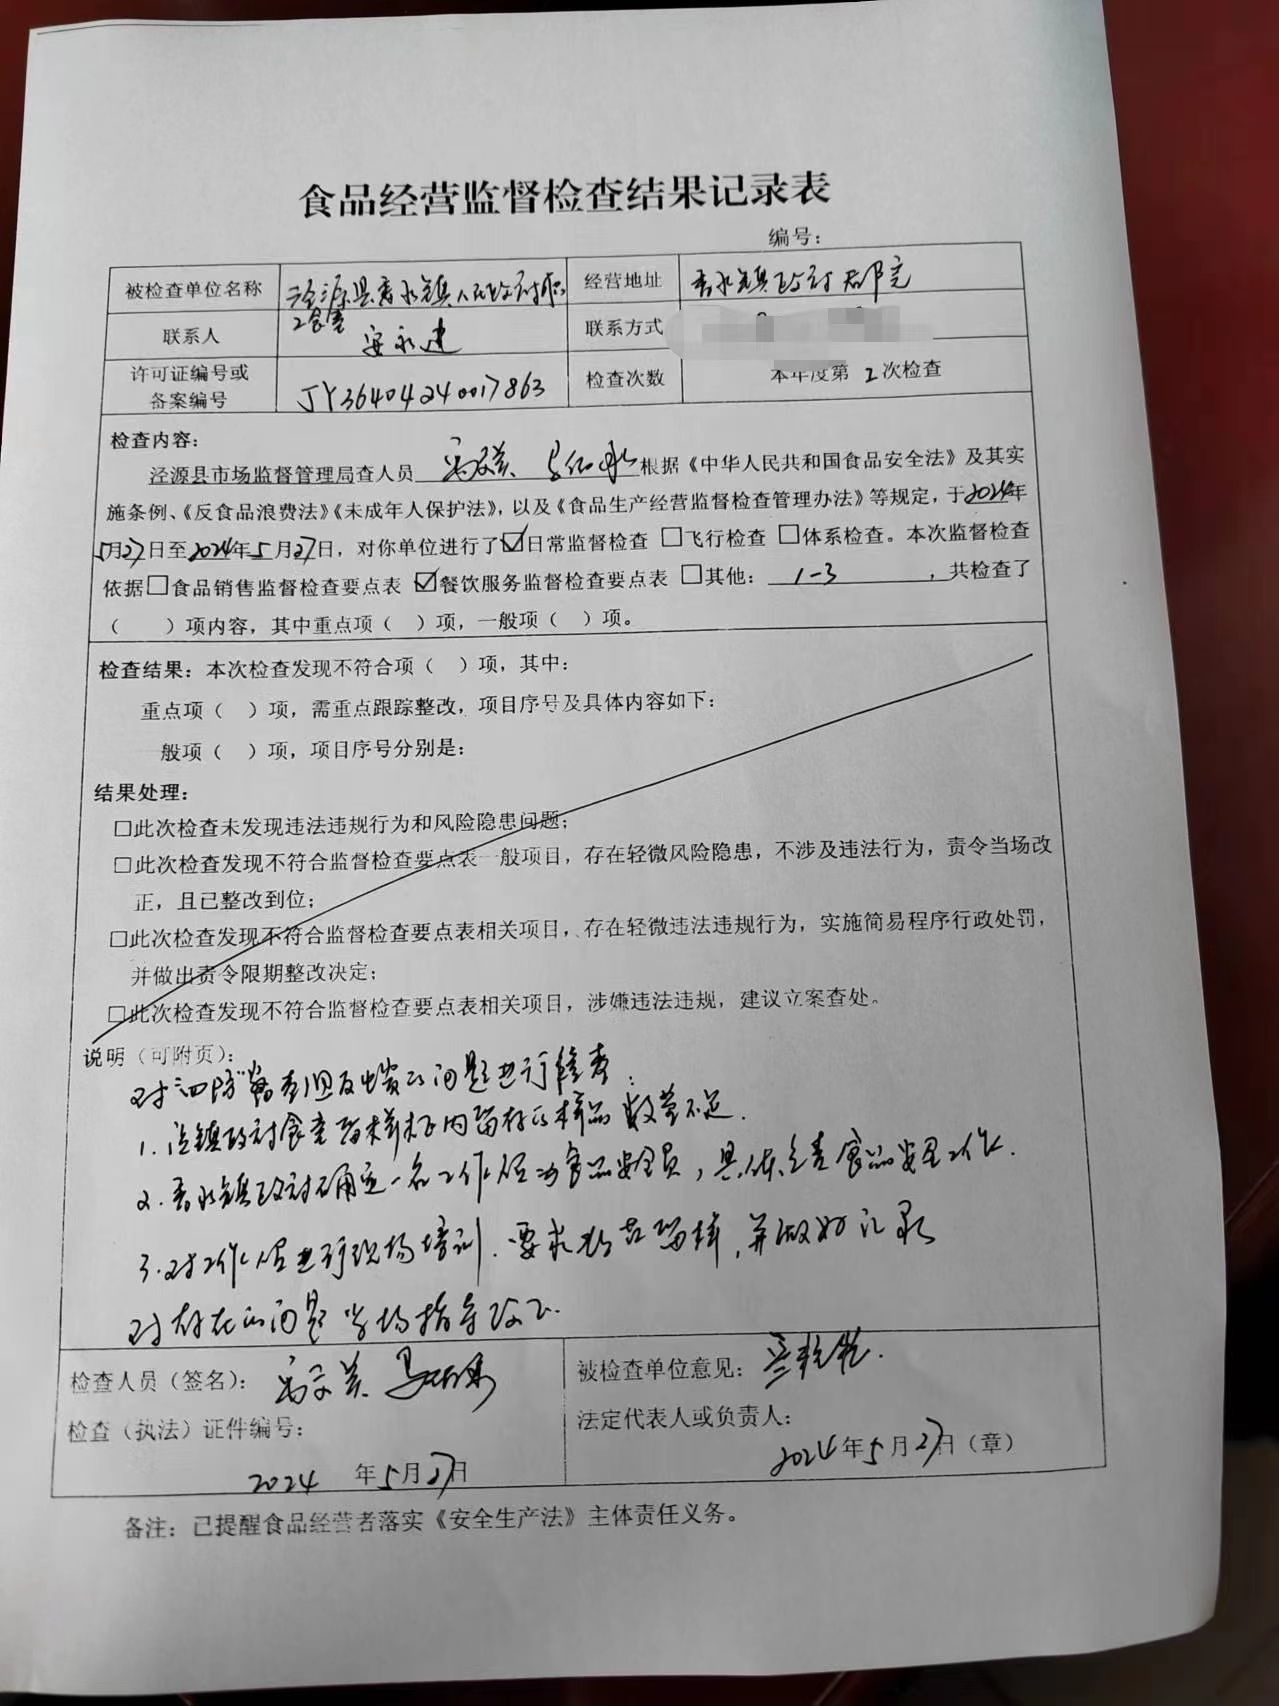 食品经营监督检查结果记录表
编号：
被检查单位名称 泾源县香水镇人民政府职工食堂 经营地址 香水镇政府大院
联系人 安永建 联系方式
许可证编号或备案编号 JY36404240017863 检查次数 本年度第2次检查
检查内容：
泾源县市场监督管理局查人员 根据《中华人民共和国食品安全法》及其实
施条例、《反食品浪费法》《未成年人保护法》，以及《食品生产经营监督检查管理办法》等规定，于2024年
5月27日至2024年5月27日，对你单位进行了☑日常监督检查 □飞行检查 □体系检查。本次监督检查
依据□食品销售监督检查要点表 ☑餐饮服务监督检查要点表 □其他：1-3，共检查了
（ ）项内容，其中重点项（ ）项，一般项（ ）项。
检查结果：本次检查发现不符合项（ ）项，其中：
重点项（ ）项，需重点跟踪整改，项目序号及具体内容如下：
般项（ ）项，项目序号分别是：
结果处理：
□此次检查未发现违法违规行为和风险隐患问题；
□此次检查发现不符合监督检查要点表一般项目，存在轻微风险隐患，不涉及违法行为，责令当场改
正，且已整改到位；
□此次检查发现不符合监督检查要点表相关项目，存在轻微违法违规行为，实施简易程序行政处罚，
并做出责令限期整改决定；
□此次检查发现不符合监督检查要点表相关项目，涉嫌违法违规，建议立案查处。
说明（可附页）：
对"四防" 反馈的问题进行检查：
1. 该镇政府食堂留样柜内留存的样品数量不足.
2. 香水镇政府确定一名工作人员为食品安全员，具体负责食品安全工作.
3. 对工作人员进行现场培训. 要求 留样，并做好记录
对存在的问题当场指导改正.
检查人员（签名）： 被检查单位意见：
检查（执法）证件编号： 法定代表人或负责人：
2024 年5月27日 2024年5月27日（章）
备注：已提醒食品经营者落实《安全生产法》主体责任义务。